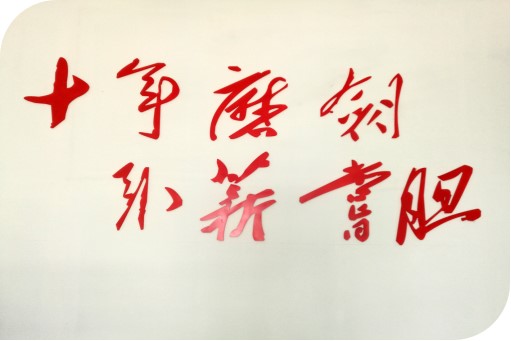 十年磨剑
卧薪尝胆